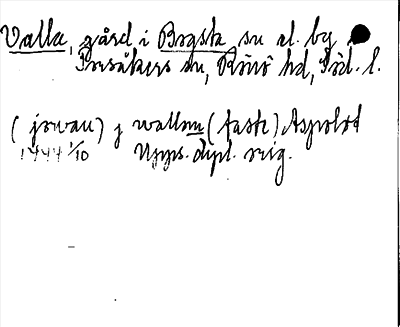 Valla, gård i Bogsta sn el. by i
Torsåkers sn, Rönö hd, Söd. l.
(jowan) j wallom (faste) Aspoløt
1444 1/10 Upps. dipl. orig.